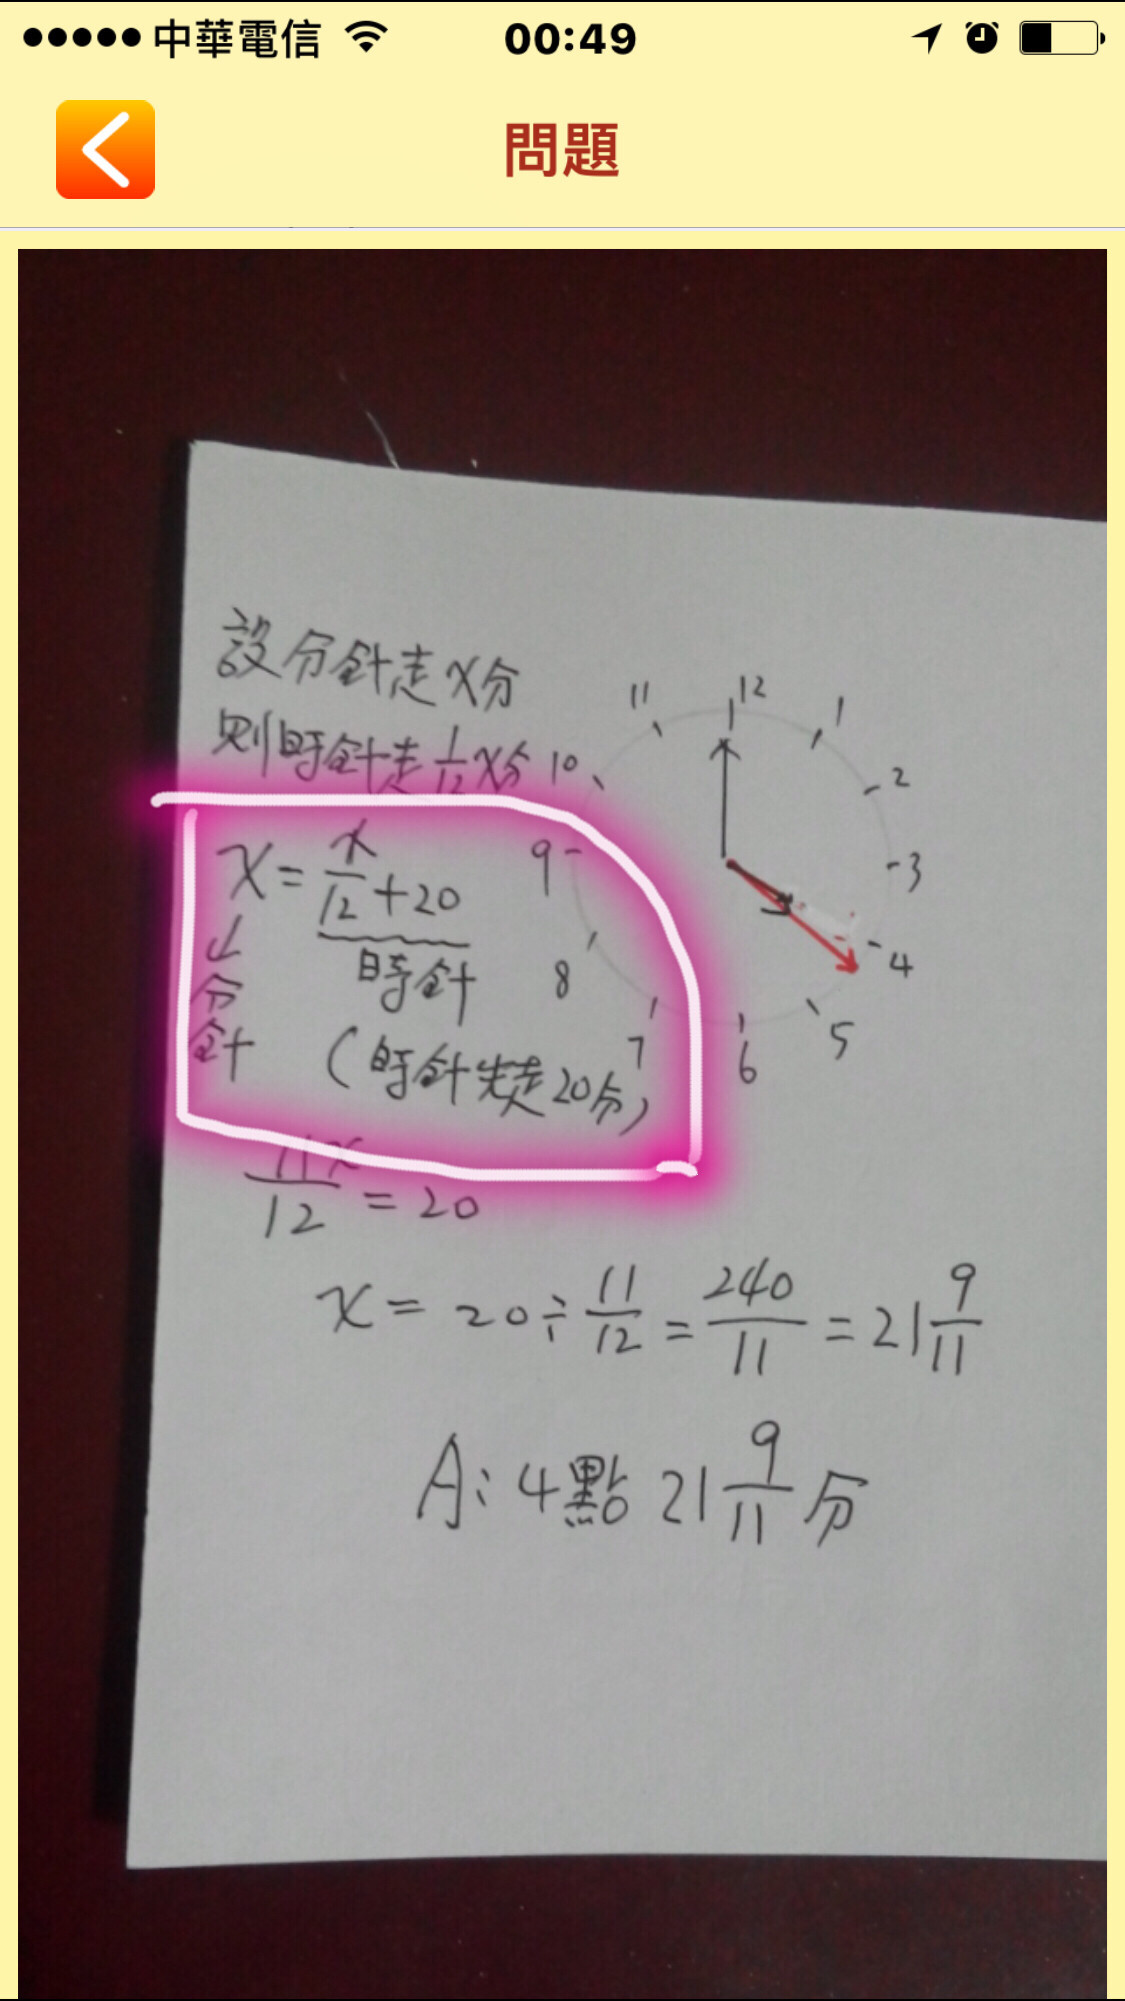 中華電信 00:49
問題
設分針走x分
則時針走1/12x分
x=x/12+20
分針
時針
(時針先走20分)
11x/12=20
x=20÷11/12=240/11=21 9/11
A:4點21 9/11分
12
1
2
3
4
5
6
7
8
9
10
11